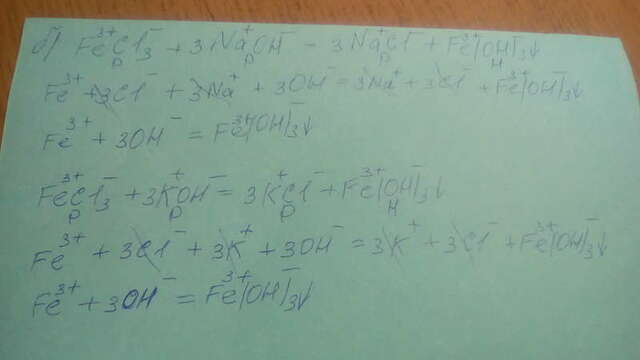 б) Fe³⁺Cl₃⁻ + 3Na⁺OH⁻ = 3Na⁺Cl⁻ + Fe³⁺(OH)₃⁻↓
р р р Н
Fe³⁺ + 3Cl⁻ + 3Na⁺ + 3OH⁻ = 3Na⁺ + 3Cl⁻ + Fe³⁺(OH)₃⁻↓
Fe³⁺ + 3OH⁻ = Fe³⁺(OH)₃⁻↓
Fe³⁺Cl₃⁻ + 3K⁺OH⁻ = 3K⁺Cl⁻ + Fe³⁺(OH)₃⁻↓
р р р Н
Fe³⁺ + 3Cl⁻ + 3K⁺ + 3OH⁻ = 3K⁺ + 3Cl⁻ + Fe³⁺(OH)₃⁻↓
Fe³⁺ + 3OH⁻ = Fe³⁺(OH)₃⁻↓